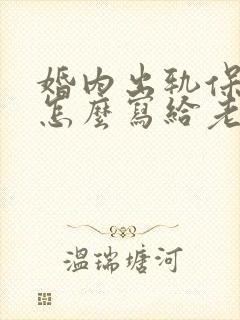 婚内出轨保
怎麼寫給老
温瑞塘河